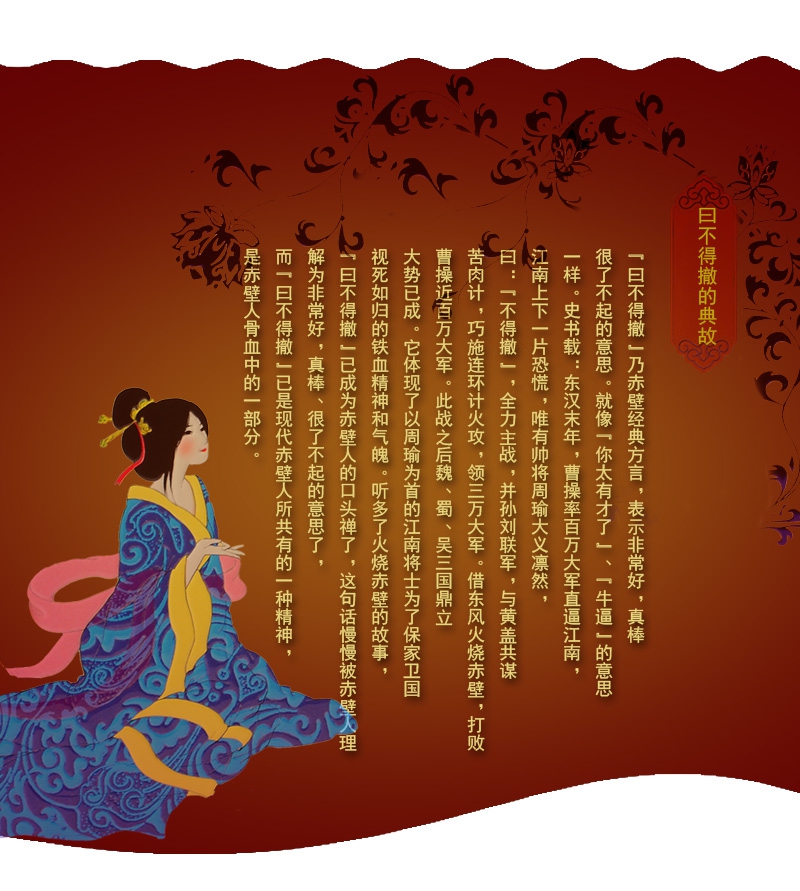 曰不得撤的典故
『曰不得撤』乃赤壁经典方言，表示非常好，真棒
很了不起的意思。就像『你太有才了』、『牛逼』的意思
一样。史书载：东汉末年，曹操率百万大军直逼江南，
江南上下一片恐慌，唯有帅将周瑜大义凛然，
曰：『不得撤』，全力主战，并孙刘联军，与黄盖共谋
苦肉计，巧施连环计火攻，领三万大军。借东风火烧赤壁，打败
曹操近百万大军。此战之后魏、蜀、吴三国鼎立
大势已成。它体现了以周瑜为首的江南将士为了保家卫国
视死如归的铁血精神和气魄。听多了火烧赤壁的故事，
『曰不得撤』已成为赤壁人的口头禅了，这句话慢慢被赤壁人理
解为非常好，真棒、很了不起的意思了，
而『曰不得撤』已是现代赤壁人所共有的一种精神，
是赤壁人骨血中的一部分。